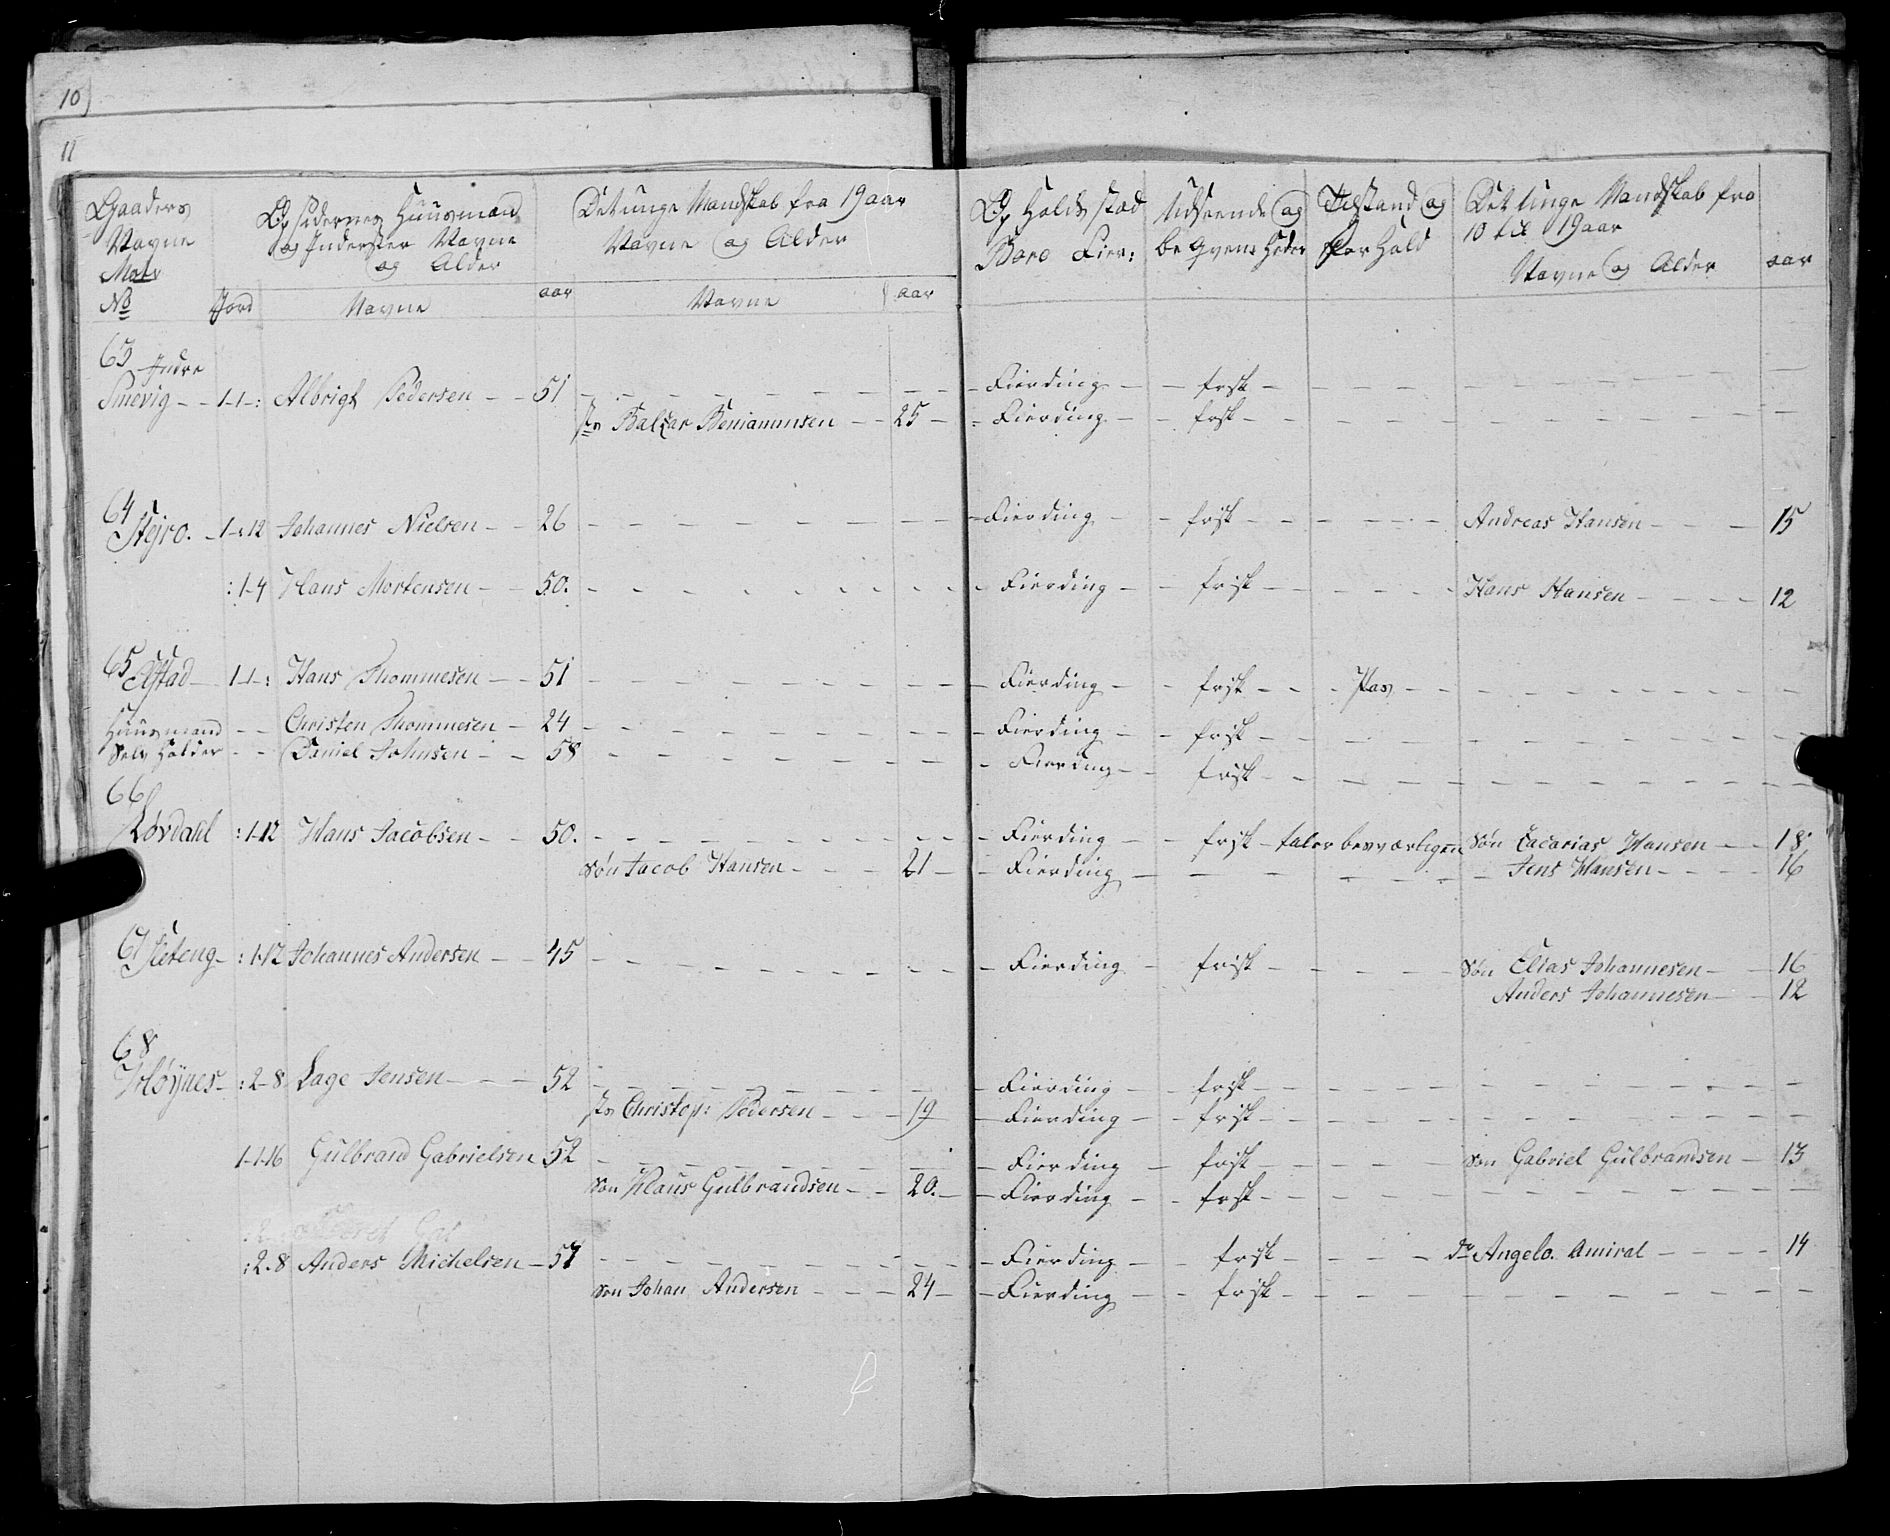 10
11
Gaaders Navne Matr No
Jord
Opsidernes Huusmænd og Inderster Navne og Alder
Navne
aar
Det unge Mandskab fra 19 aar Navne og Alder
Navne
aar
Op Holds stæd
Udseende og beqvemheder
Tilstand og Forhold
Det unge Mandskab fra 10 til 19 aar Navne og Alder
aar
63 Indre
Smevig 1-1-: Albrigt Pedersen 51 Fierding frisk
Balzar Beniaminsen 25 Fierding frisk
64
1-:12 Johannes Nielsen 26 Fierding frisk Andreas Hansen 15
:1-4 Hans Mortensen 50. Fierding frisk Hans Hansen 12
65
1-1-: Hans Thommesen 51 Fierding frisk Pas
Huusmand Christen Thommesen 24 Fierding frisk
Selv Holder Daniel Johnsen 58 Fierding frisk
66
Lørdahl :1-12 Hans Jacobsen 50. Fierding frisk taler besværligen søn Zacarias Hansen 18
søn Jacob Hansen 21 Fierding Jens Hansen 16
67 Fleteng :1-12 Johannes Andersen 45 Fierding frisk søn Elias Johannesen 16
Anders Johannesen 12
68
:2-8 Lage Jensen 52 Fierding frisk
Christop: Pedersen 19 Fierding frisk
1-1-16 Gulbrand Gabrielsen 52 Fierding frisk søn Gabriel Gulbrandsen 13
søn Klaus Gulbrandsen 20. Fierding frisk
:2-8 Anders Michelsen 57 Fierding frisk do Angelo Amiral 14
søn Johan Andersen 24 Fierding frisk